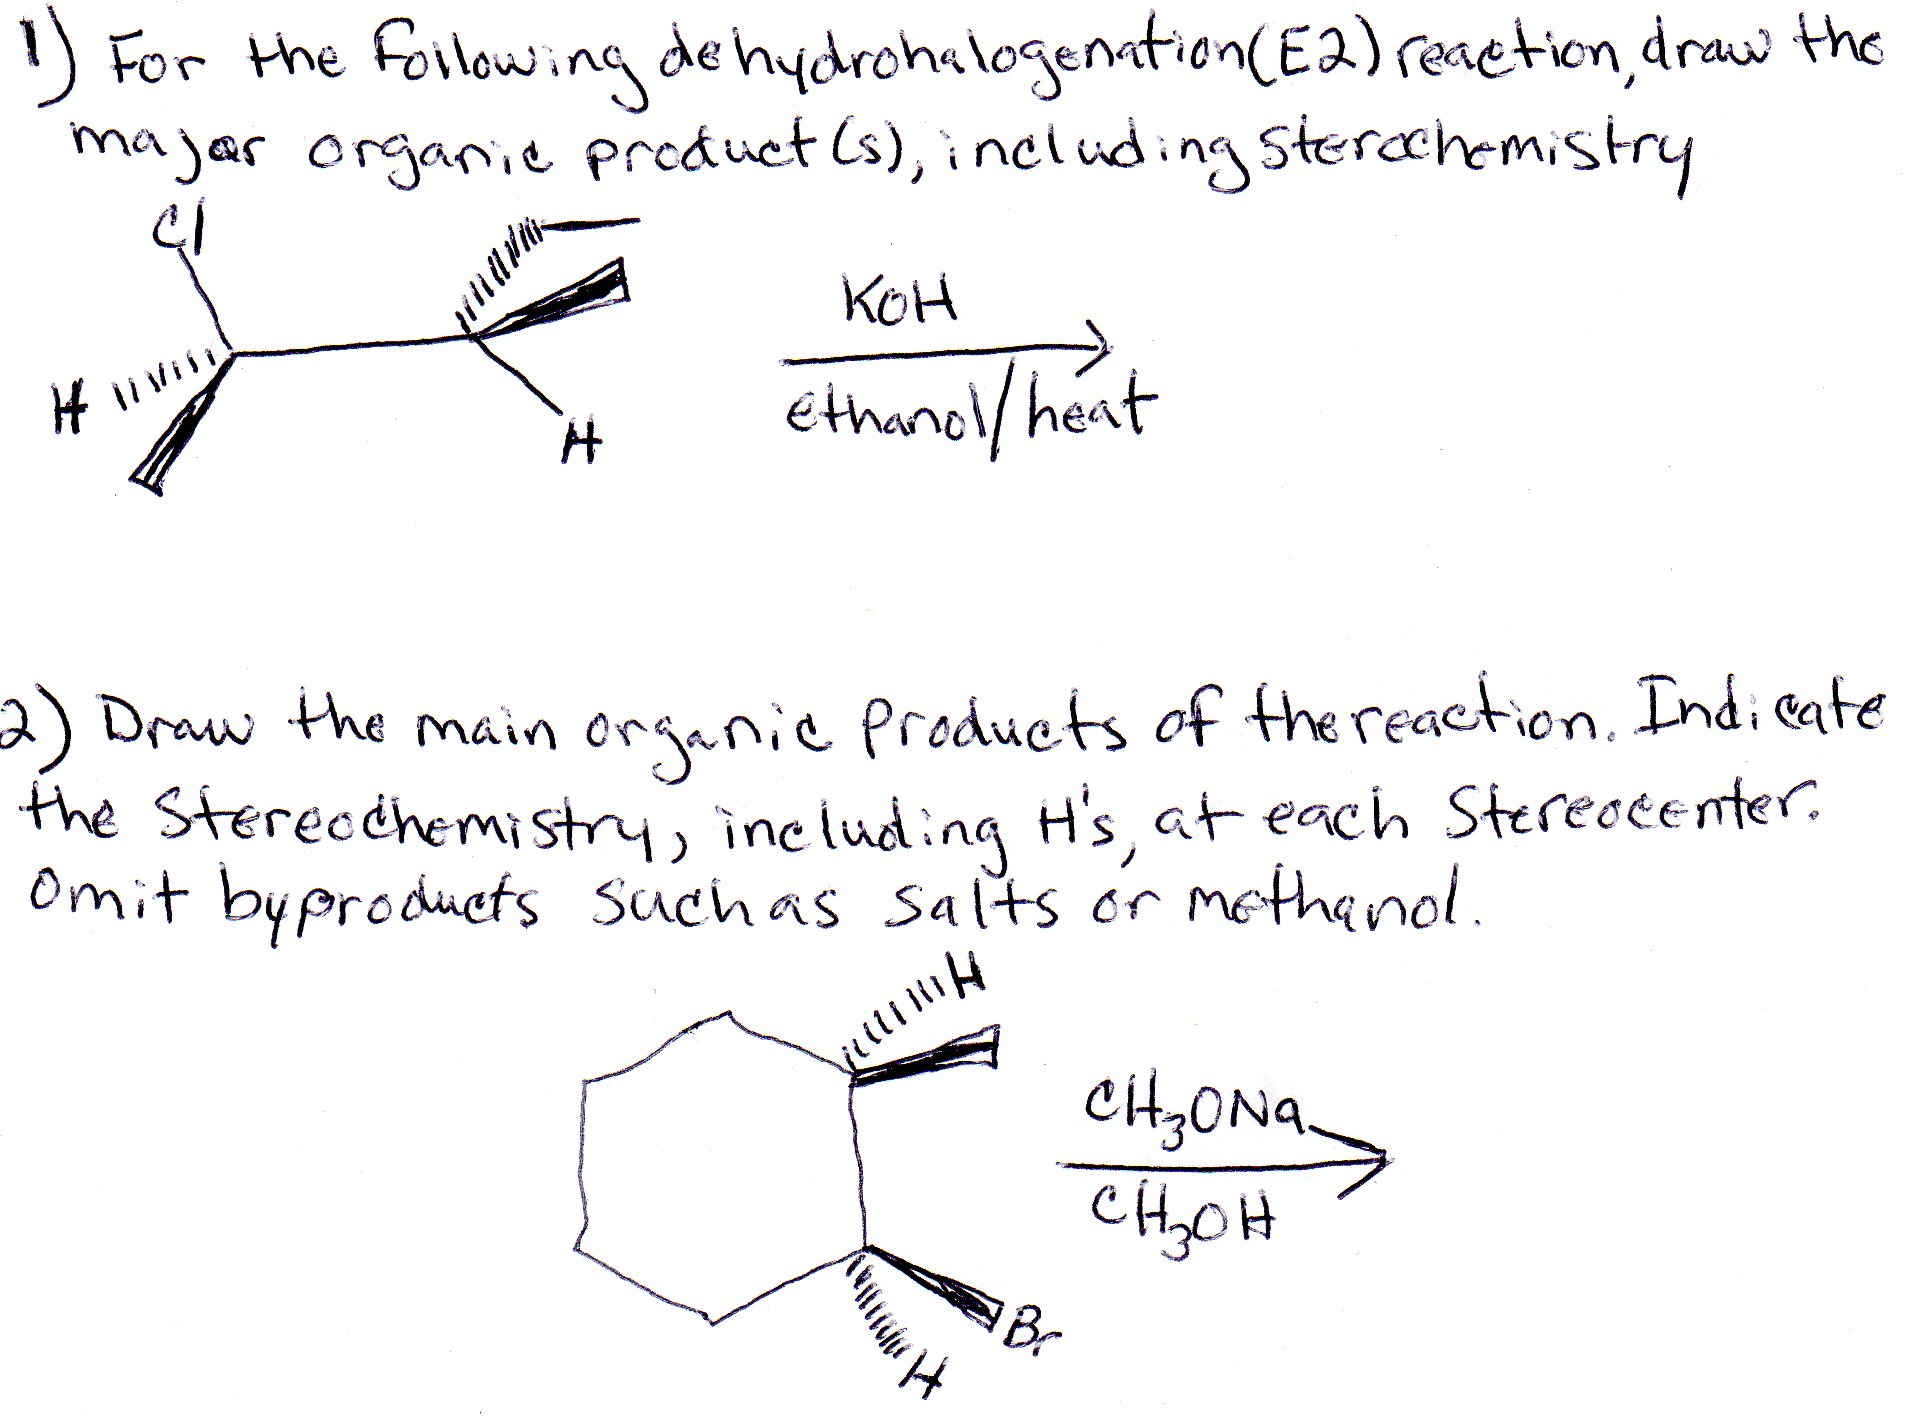 1) For the following dehydrohalogenation (E2) reaction, draw the
major organic product(s), including sterochemistry
Cl
H
H
KOH
ethanol/heat
2) Draw the main organic products of the reaction. Indicate
the stereochemistry, including H's, at each stereocenter.
Omit byproducts such as salts or methanol.
H
CH3ONa
CH3OH
Br
H